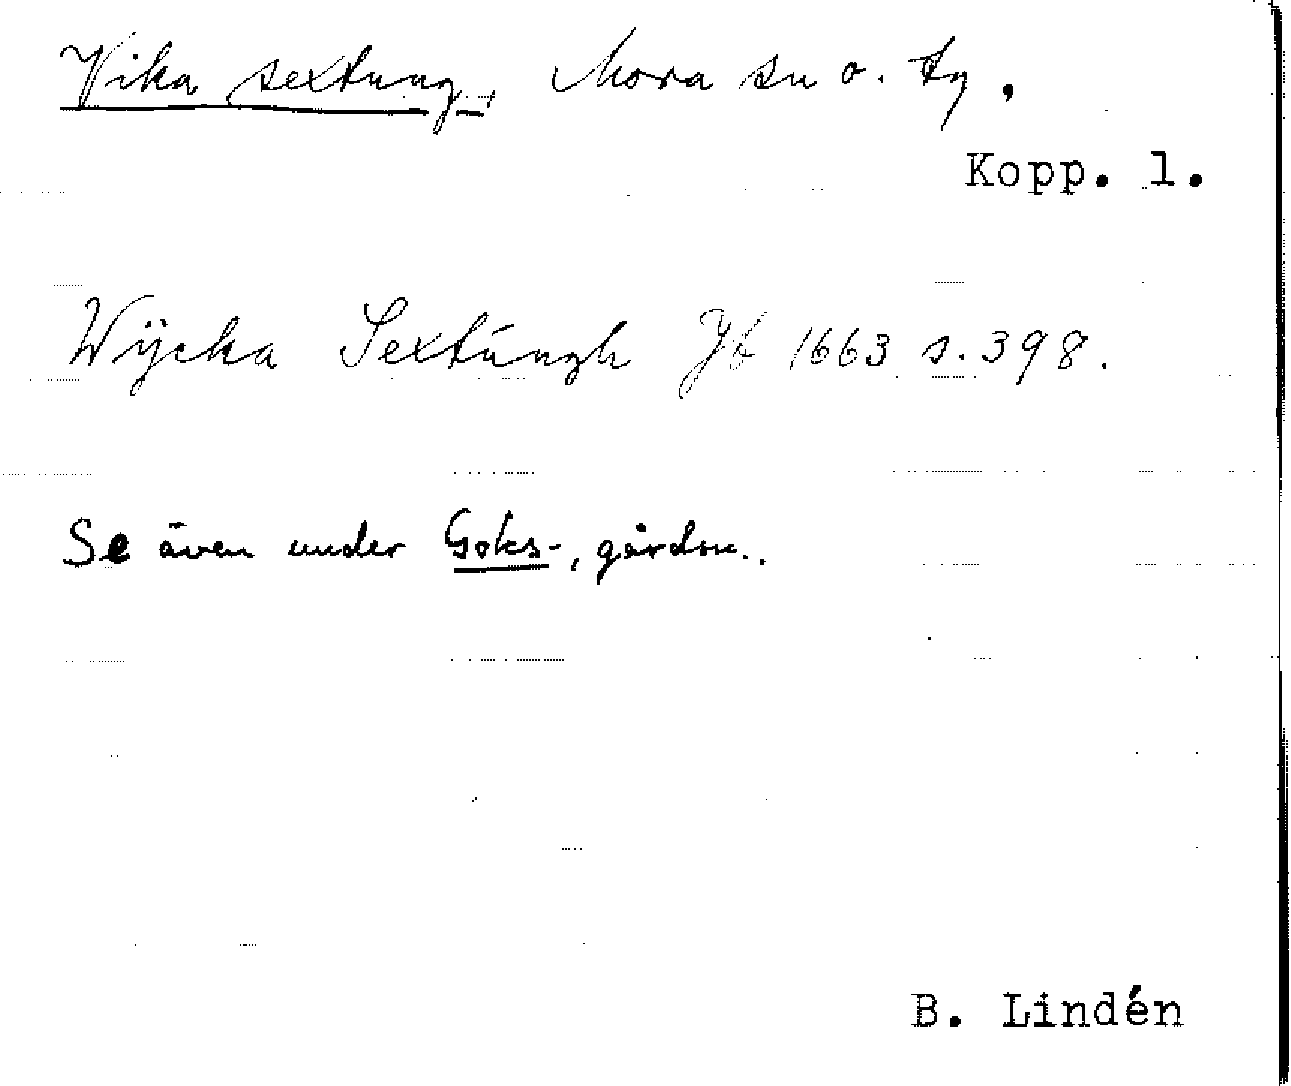 Vika sextung, Mora sn o. tg.
Kopp. l.
Wÿcka Sextúngh Jb 1663 s. 398.
Se även under Goks-, gårdsn.
B. Lindén